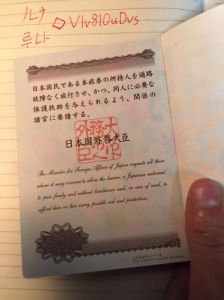 ルナ ◇V1v810uDvs
루나
日本国民である本旅券の所持人を通路
故障なく旅行させ、かつ、同人に必要な
保護扶助を与えられるよう、関係の
諸官に要請する。
日本国外務大臣
The Minister for Foreign Affairs of Japan requests all those
whom it may concern to allow the bearer, a Japanese national,
to pass freely and without hindrance and, in case of need, to
afford him or her every possible aid and protection.